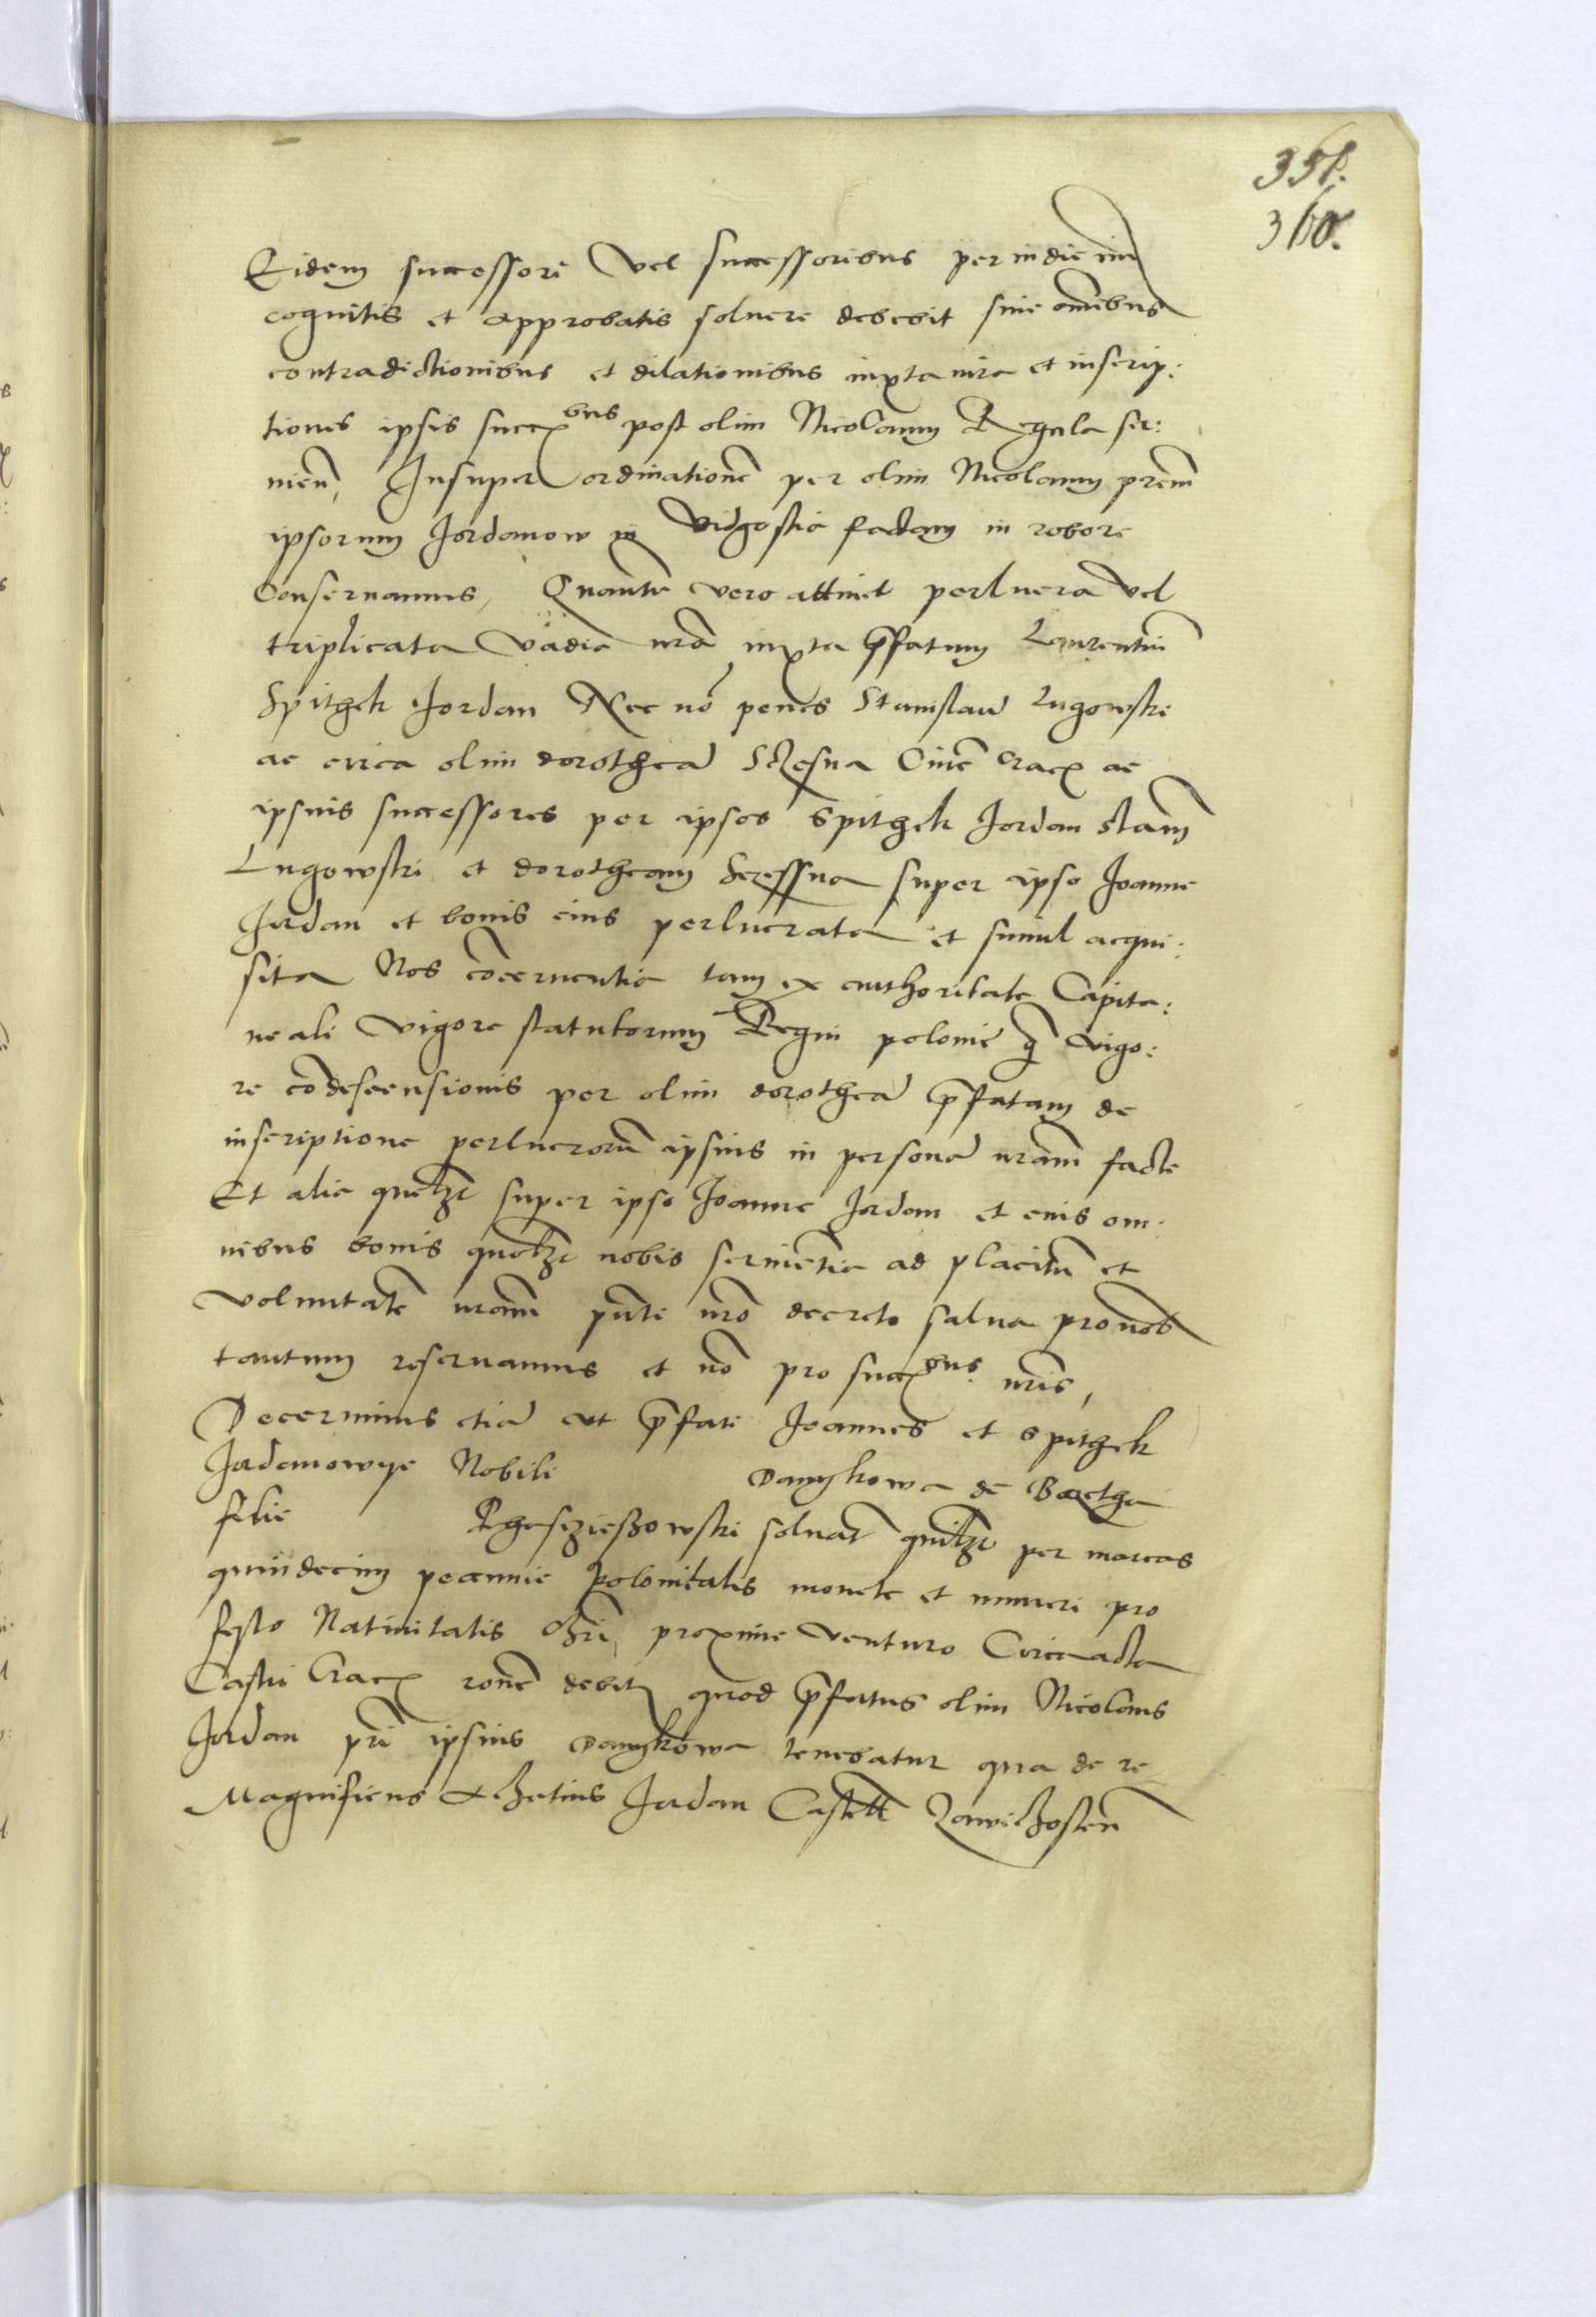 351.
360.
Eidem successori vel successoribus per indicium
cognitis et approbatis soluere debebit sine omnibus
contradictionibus et dilationibus iuxta iura et inscrip:
tiones ipsis succ bus post olim Nicolaum Regula ser:
uien, Insuper ordinationem per olim Nicolaum prem
ipsorum Jordanow in factam in robore
Conseruamus, Quantum vero attinet perlucra vel
triplicata vadia nra iuxta pfatum Laurentium
Spithek Jordan Nec no penes Stanislaum Lugowski
ac circa olim dorotheam Sczesna Ciuem Crac ac
ipsius successores per ipsos Spithek Jordan Stam
Lugowski et dorotheam super ipso Joanne
Jordan et bonis eius perlucrata et simul acqui:
sita Nos concernentia tam ex authoritate Capita:
neali vigore statutorum Regni polonie q vigo:
re condescensionis per olim dorothea pfatam de
inscriptione perlucrorum ipsius in persona nram facte
Et alia quelzt super ipso Joanne Jordan et eius om:
nibus bonis quolzt nobis seruientia ad placitum et
voluntate nram pnti nro decreto salua pro nobis
tantum reseruamus et no pro succ bus nris,
Decernimus etia ut pfati Joannes et Spithek
Jordanowye Nobili Danykowa de
filie soluat quilzt per marcas
quindecim pecunie Polonicalis monete et numeri pro
festo Natiuitatis Chri proxime venturo Circa acta
Castri Crac rone debiti quod pfatus olim Nicolaus
Jordan pri ipsius Danykowa tenebatur qua de re
Magnificus Achatius Jordan Castell Zawichosten